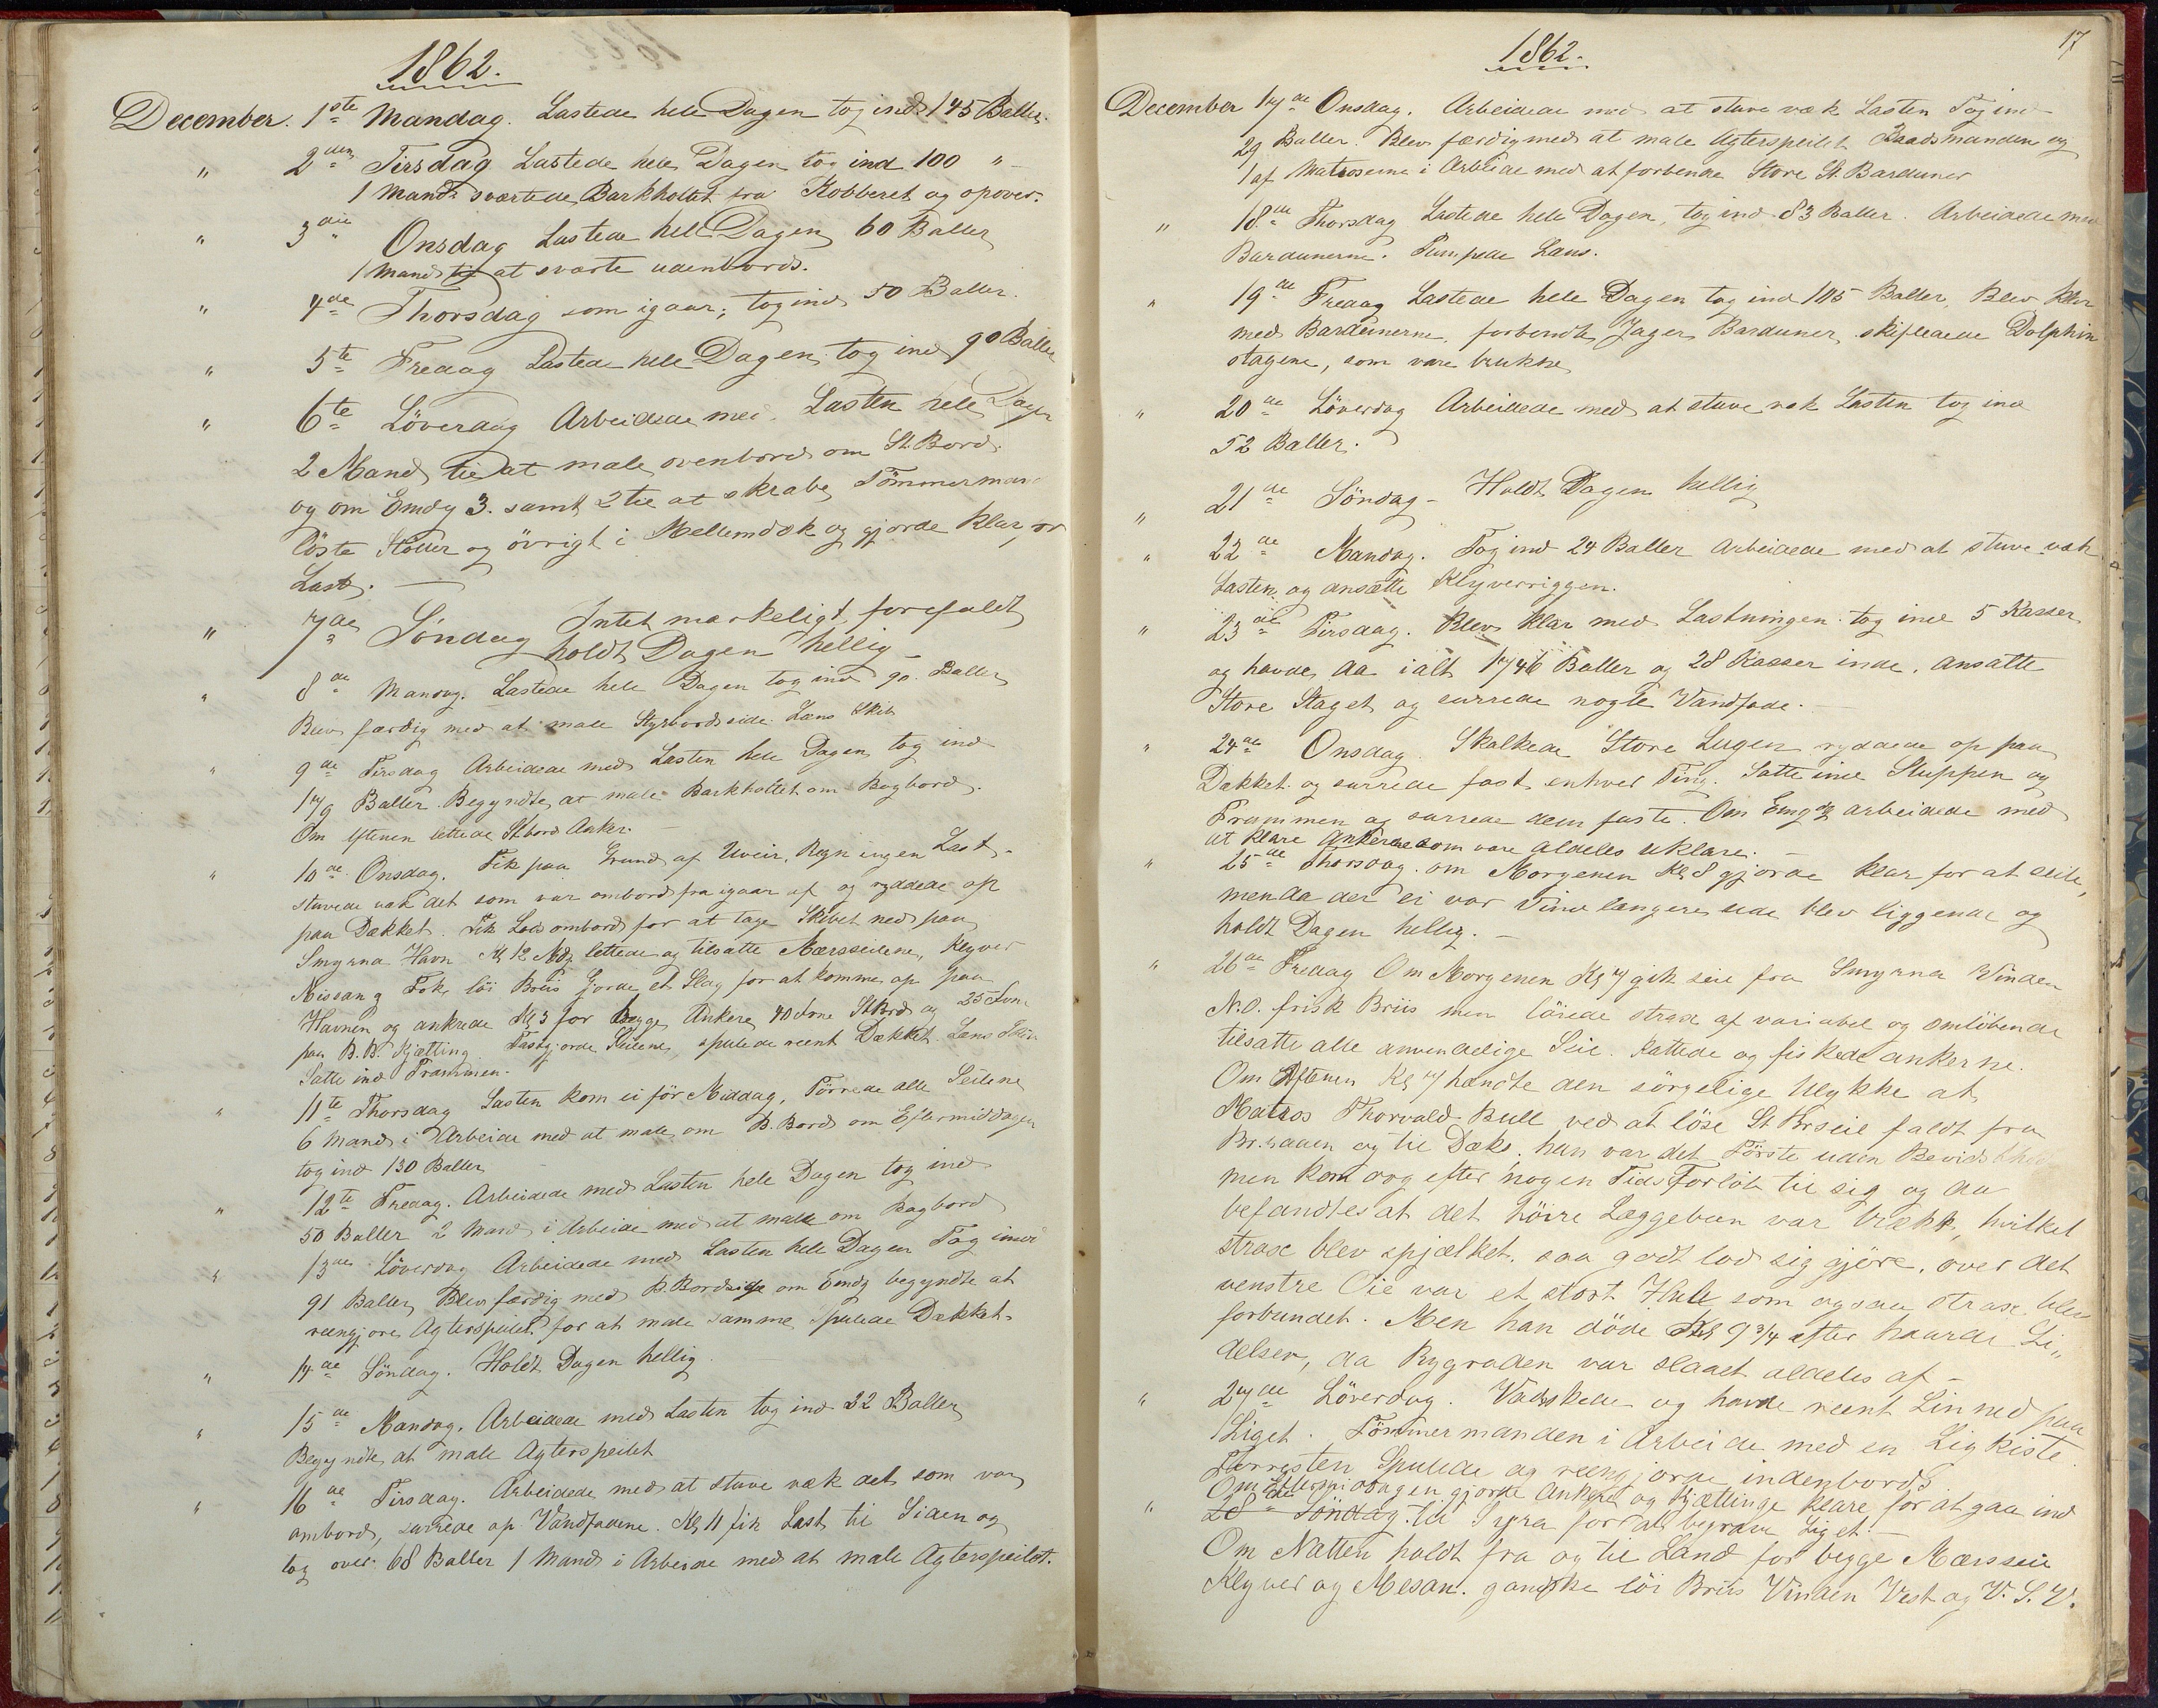 1862.
December. 1ste Mandag. Lastede hele Dagen tog ind 145 Baller.
" 2den Tirsdag Lastede hele Dagen tog ind 100 "
1 Mand sværtede Barkholtet fra Kobberet og opover.
" 3die Onsdag Lastede hele Dagen 60 Baller
1 Mand til at sværte udenbords.
" 4de Thorsdag som igaar; tog ind 50 Baller.
" 5te Fredag Lastede hele Dagen tog ind 90 Baller
" 6te Löverdag Arbeidede med Lasten hele Dagen
2 Mand til at male ovenbord om St. Bord.
og om Emdg 3. samt 2 til at skrabe Tömmermand
löste Stötter og övrigt i Mellemdæk og gjorde klar for
Last. —
" 7de Söndag Intet mærkeligt forefaldt
holdt Dagen hellig —
" 8de Mandag. Lastede hele Dagen tog ind 90. Baller
Blev færdig med at male Styrbordsside. Læns Skib
" 9de Tirsdag Arbeidede med Lasten hele Dagen tog ind
179 Baller. Begyndte at male Barkholtet om Bagbord.
Om Aftenen lettede St.bord Anker.
" 10de Onsdag. Fik paa Grund af Uveir, Regn ingen Last,
stuvede væk det som var ombord fra igaar af og ryddede op
paa Dækket. Fik Lods ombord for at tage Skibet ned paa
Smyrna Havn Kl 12 Mdg lettede og tilsatte Mærsseilene, Klyver
Missan & Fok, löi Briis Gjorde et Slag for at komme op paa
Havnen og ankrede Kl 3 for begge Ankere, 40 Fvne St.Brd og 25 Fvne
paa B.B. Kjætting. Fastgjorde Seilene, spulede reent Dækket. Læns Skib
Satte ind Prammen.
" 11te Thorsdag Lasten kom ei för Middag, Törrede alle Seilene
6 Mand i Arbeide med at male om B. Bord om Eftermiddagen
tog ind 130 Baller
" 12te Fredag. Arbeidede med Lasten hele Dagen tog ind
50 Baller 2 Mand i Arbeide med at male om Bagbord
" 13de Löverdag Arbeidede med Lasten hele Dagen Tog ind
91 Baller, Blev færdig med B. Bordside om Emdg begyndte at
reengjöre Agterspeilet for at male samme, spulede Dækket.
" 14de Söndag. Holdt Dagen hellig
" 15de Mandag. Arbeidede med Lasten tog ind 32 Baller
Begyndte at male Agterspeilet
" 16de Tirsdag. Arbeidede med at stuve væk det som var
ombord, surrede op Vandfadene. Kl 11 fik Last til Siden og
tog over 68 Baller 1 Mand i Arbeide med at male Agterspeilet.
17
1862.
December 17de Onsdag. Arbeidede med at stuve væk Lasten Tog ind
29 Baller. Blev færdig med at male Agterspeilet Baadsmanden og
1 af Matroserne i Arbeide med at forbende Store St. Barduner
" 18de Thorsdag Lastede hele Dagen, tog ind 83 Baller. Arbeidede med
Bardunerne. Pumpede Læns.
" 19de Fredag Lastede hele Dagen tog ind 105 Baller, Blev klar
med Bardunerne, forbendte Jager Barduner, skiflede Dolphin
stagene, som vare brukne
" 20de Löverdag Arbeidede med at stuve væk Lasten tog ind
52 Baller.
" 21de Söndag — Holdt Dagen hellig
" 22de Mandag. Tog ind 24 Baller Arbeidede med at stuve væk
Lasten og ansætte Klyverriggen.
" 23de Tirsdag. Blev klar med Lastningen tog ind 5 Kasser
og havde da ialt 1746 Baller og 28 Kasser inde. ansatte
Store Staget og surrede nogle Vandfade. —
" 24de Onsdag. Skalkede Store Lugen ryddede op paa
Dækket og surrede fast enhver Ting. Satte ind Sluppen og
Prammen og surrede dem faste. Om Emdg arbeidede med
at klare Ankerne som vare aldeles uklare. —
" 25de Thorsdag. om Morgenen Kl 8 gjorde klar for at seile,
men da der ei var Vind længere ude blev liggende og
holdt Dagen hellig. —
" 26de Fredag Om Morgenen Kl 7 gik seil fra Smyrna Vinden
N.O. frisk Briis men löiede strax af variabel og omlöbende
tilsatte alle anvendelige Seil. Kattede og fiskede ankerne.
Om Aftenen Kl 7 hændte den sörgelige Ulykke at
Matros Thorvald Bull ved at löse St Brseil faldt fra
Br.raaen og til Dæks, han var det Förste uden Bevidsthed
men kom dog efter nogen Tids Forlöb til sig og da
befandtes at det höire Læggeben var brækk, hvilket
strax blev spjælket, saa godt lod sig gjöre, over det
venstre Öie var et stort Hull som ogsaa strax blev
forbundet. Men han döde Kl 9 3/4 efter haarde Li„
delser, da Rygraden var slaaet aldeles af —
" 27de Löverdag. Vadskede og havde reent Linned paa
Liget. Tömmermanden i Arbeide med en Ligkiste.
Forresten Spulede og reengjorde indenbords
Om Eftermiddagen gjorde Ankere og Kjættinge klare for at gaa ind
" 28de Söndag til Syra for at begrave Liget. —
Om Natten holdt fra og til Land for begge Mærsseil
Klyver og Mesan. ganske löi Briis Vinden Vest og V. S. V.